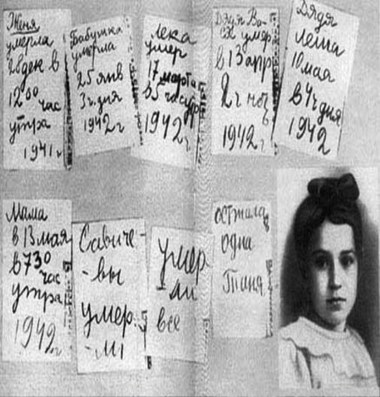 Женя
умерла
28 дек в
12 00
час
утра
1941 г
Бабушка
умерла
25 янв
3 ч. дня
1942 г
Лека
умер
17 марта
в 5 час утр
1942 г
Дядя Ва-
ся умер
в 13 апр
2 ч ноч
1942 г
Дядя
Леша
10 мая
в 4 ч дня
1942
Мама
в 13 мая
в 7 30
час
утра
1942 г
Савиче-
-вы
умер-
-ли
умер
ли
все
остала
одна
Таня